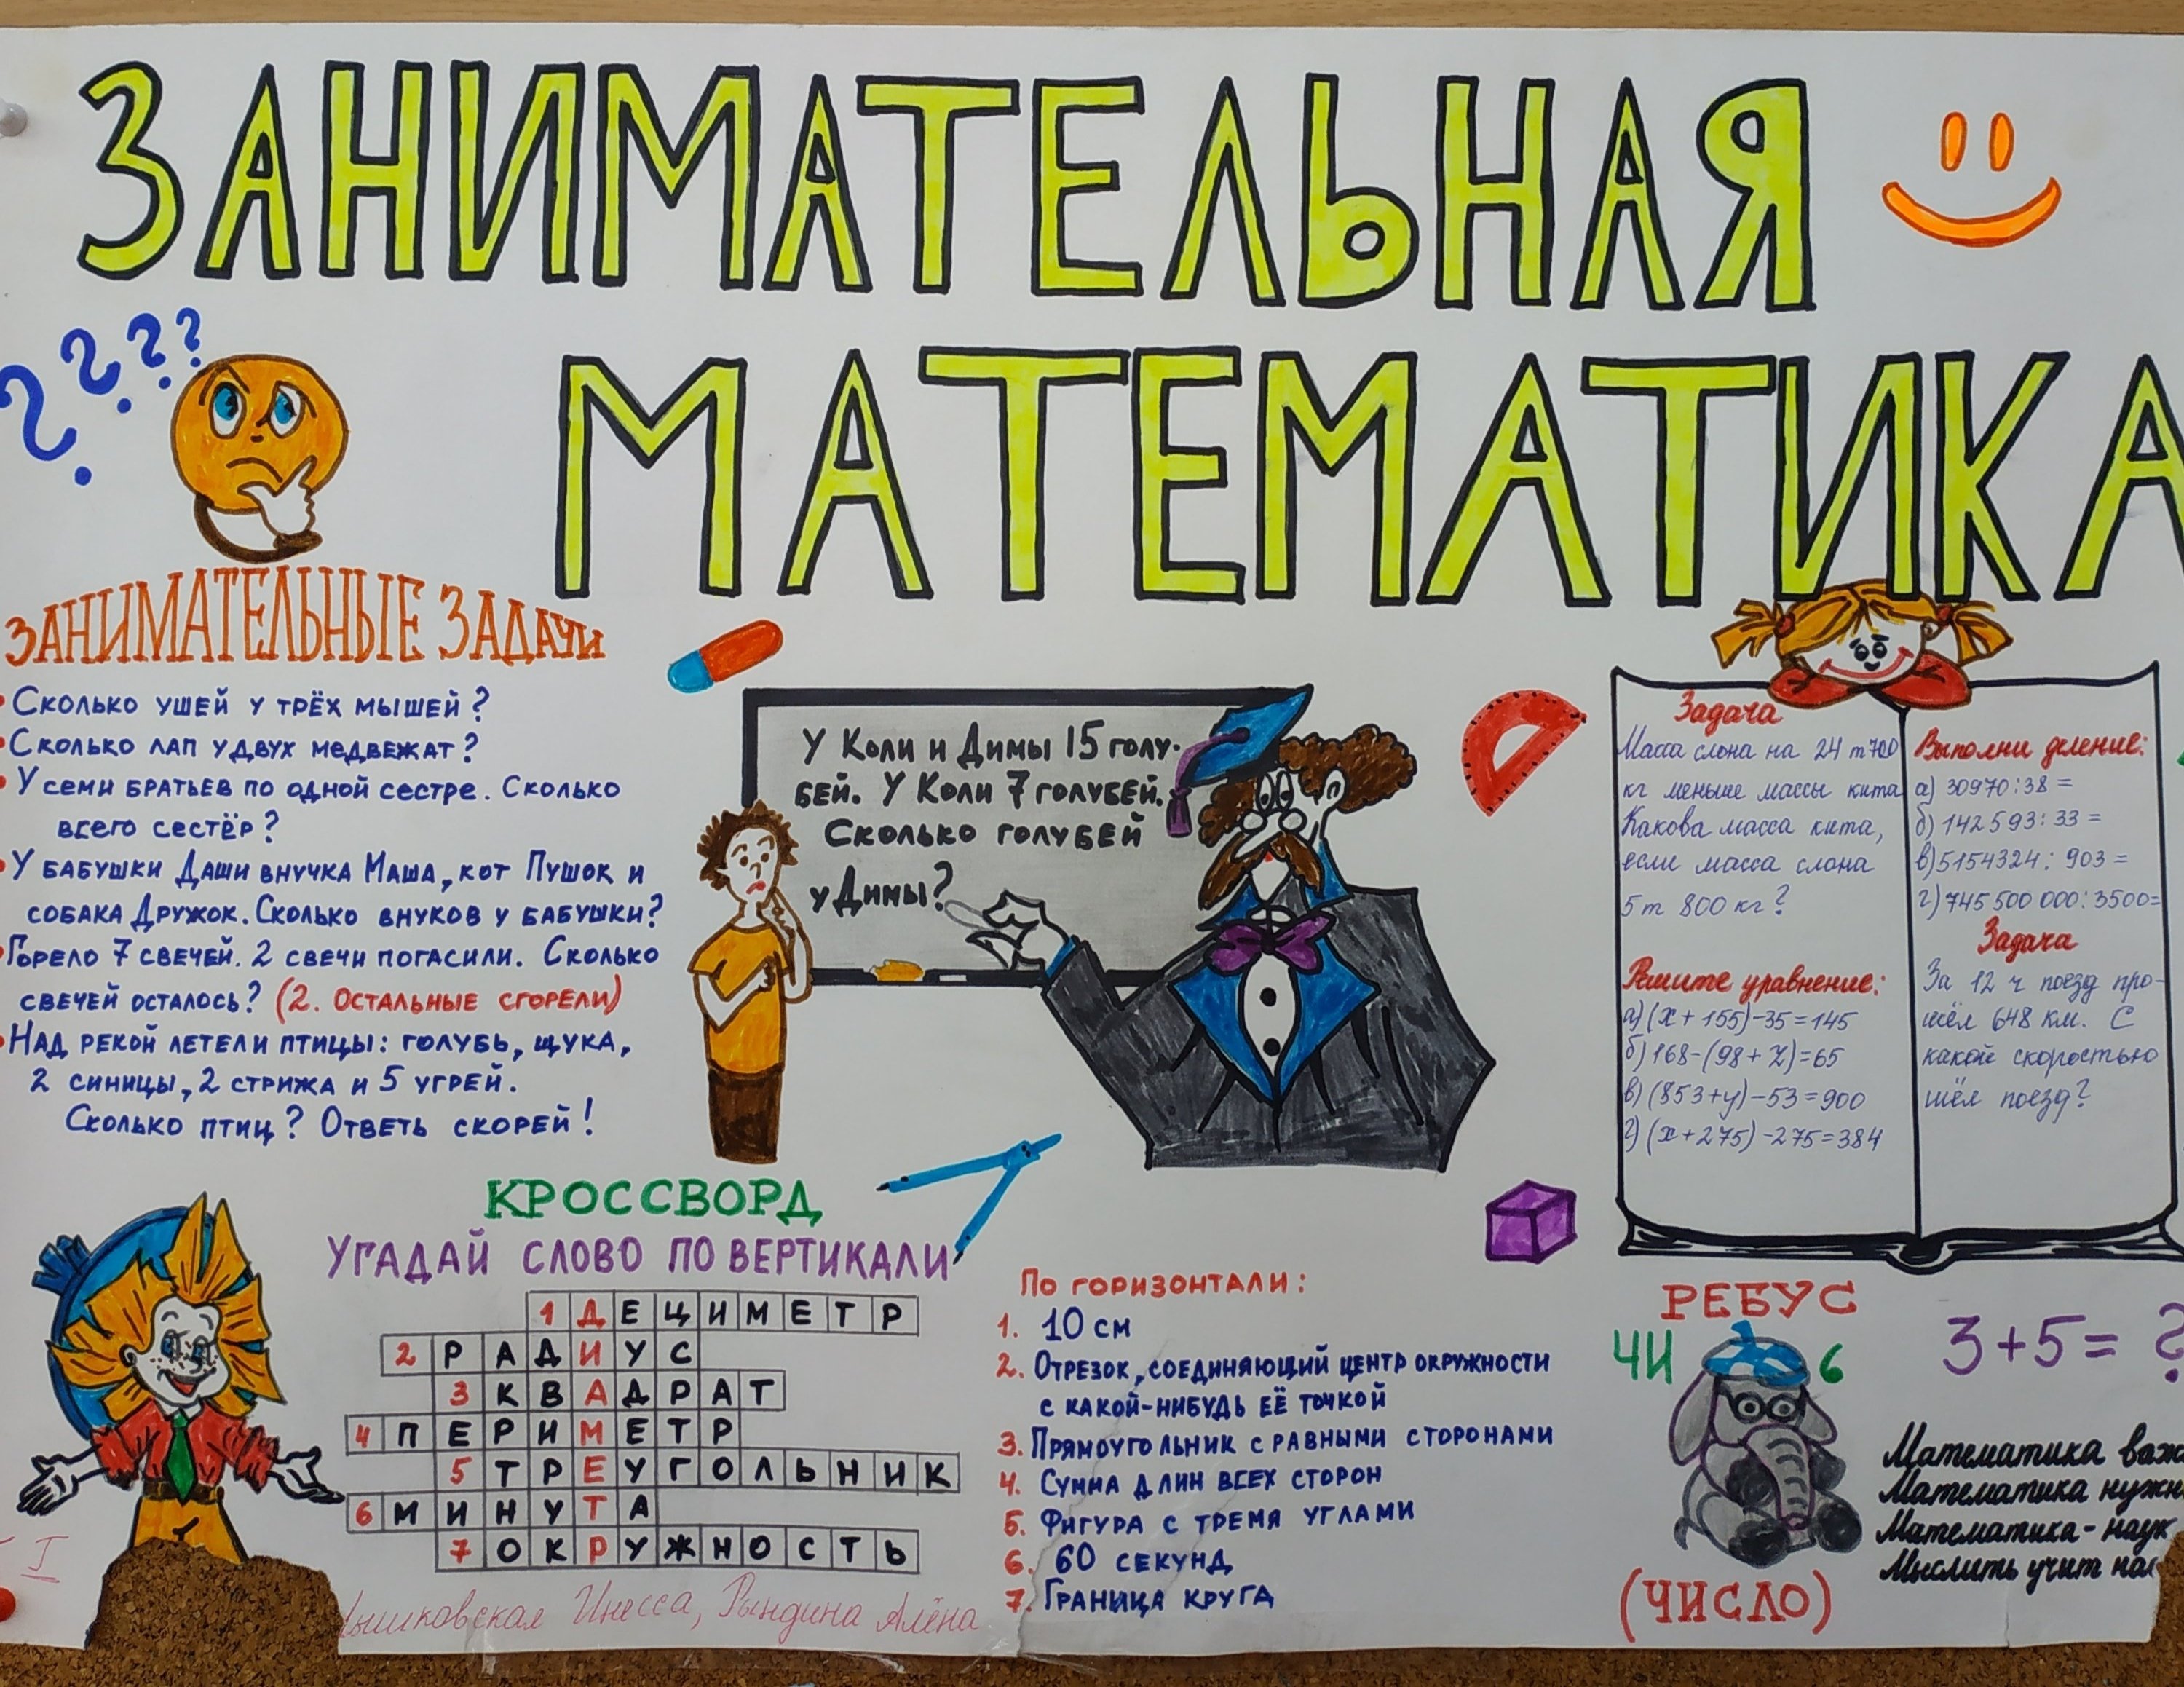 ЗАНИМАТЕЛЬНАЯ
МАТЕМАТИКА
? ? ? ?
ЗАНИМАТЕЛЬНЫЕ ЗАДАЧИ
• Сколько ушей у трёх мышей?
• Сколько лап у двух медвежат?
• У семи братьев по одной сестре. Сколько
всего сестёр?
• У бабушки Даши внучка Маша, кот Пушок и
собака Дружок. Сколько внуков у бабушки?
• Горело 7 свечей. 2 свечи погасили. Сколько
свечей осталось? (2. Остальные сгорели)
• Над рекой летели птицы: голубь, щука,
2 синицы, 2 стрижа и 5 угрей.
Сколько птиц? Ответь скорей!
У Коли и Димы 15 голу-
бей. У Коли 7 голубей.
Сколько голубей
у Димы?
Задача
Масса слона на 24 т 700
кг меньше массы кита
Какова масса кита,
если масса слона
5 т 800 кг?
Решите уравнение:
а) (x + 155) - 35 = 145
б) 168 - (98 + z) = 65
в) (853 + y) - 53 = 900
г) (x + 275) - 275 = 384
Выполни деление:
а) 30970 : 38 =
б) 142593 : 33 =
в) 5154324 : 903 =
г) 745 500 000 : 3500 =
Задача
За 12 ч поезд про-
шёл 648 км. С
какой скоростью
шёл поезд?
КРОССВОРД
УГАДАЙ СЛОВО ПО ВЕРТИКАЛИ
1 ДЕЦИМЕТР
2 РАДИУС
3 КВАДРАТ
4 ПЕРИМЕТР
5 ТРЕУГОЛЬНИК
6 МИНУТА
7 ОКРУЖНОСТЬ
По горизонтали:
1. 10 см
2. Отрезок, соединяющий центр окружности
с какой-нибудь её точкой
3. Прямоугольник с равными сторонами
4. Сумма длин всех сторон
5. Фигура с тремя углами
6. 60 секунд
7. Граница круга
РЕБУС
ЧИ 6
(ЧИСЛО)
3+5= ?
Математика
Математика
Математика -
Мыслить учит
Инесса, Рындина Алёна